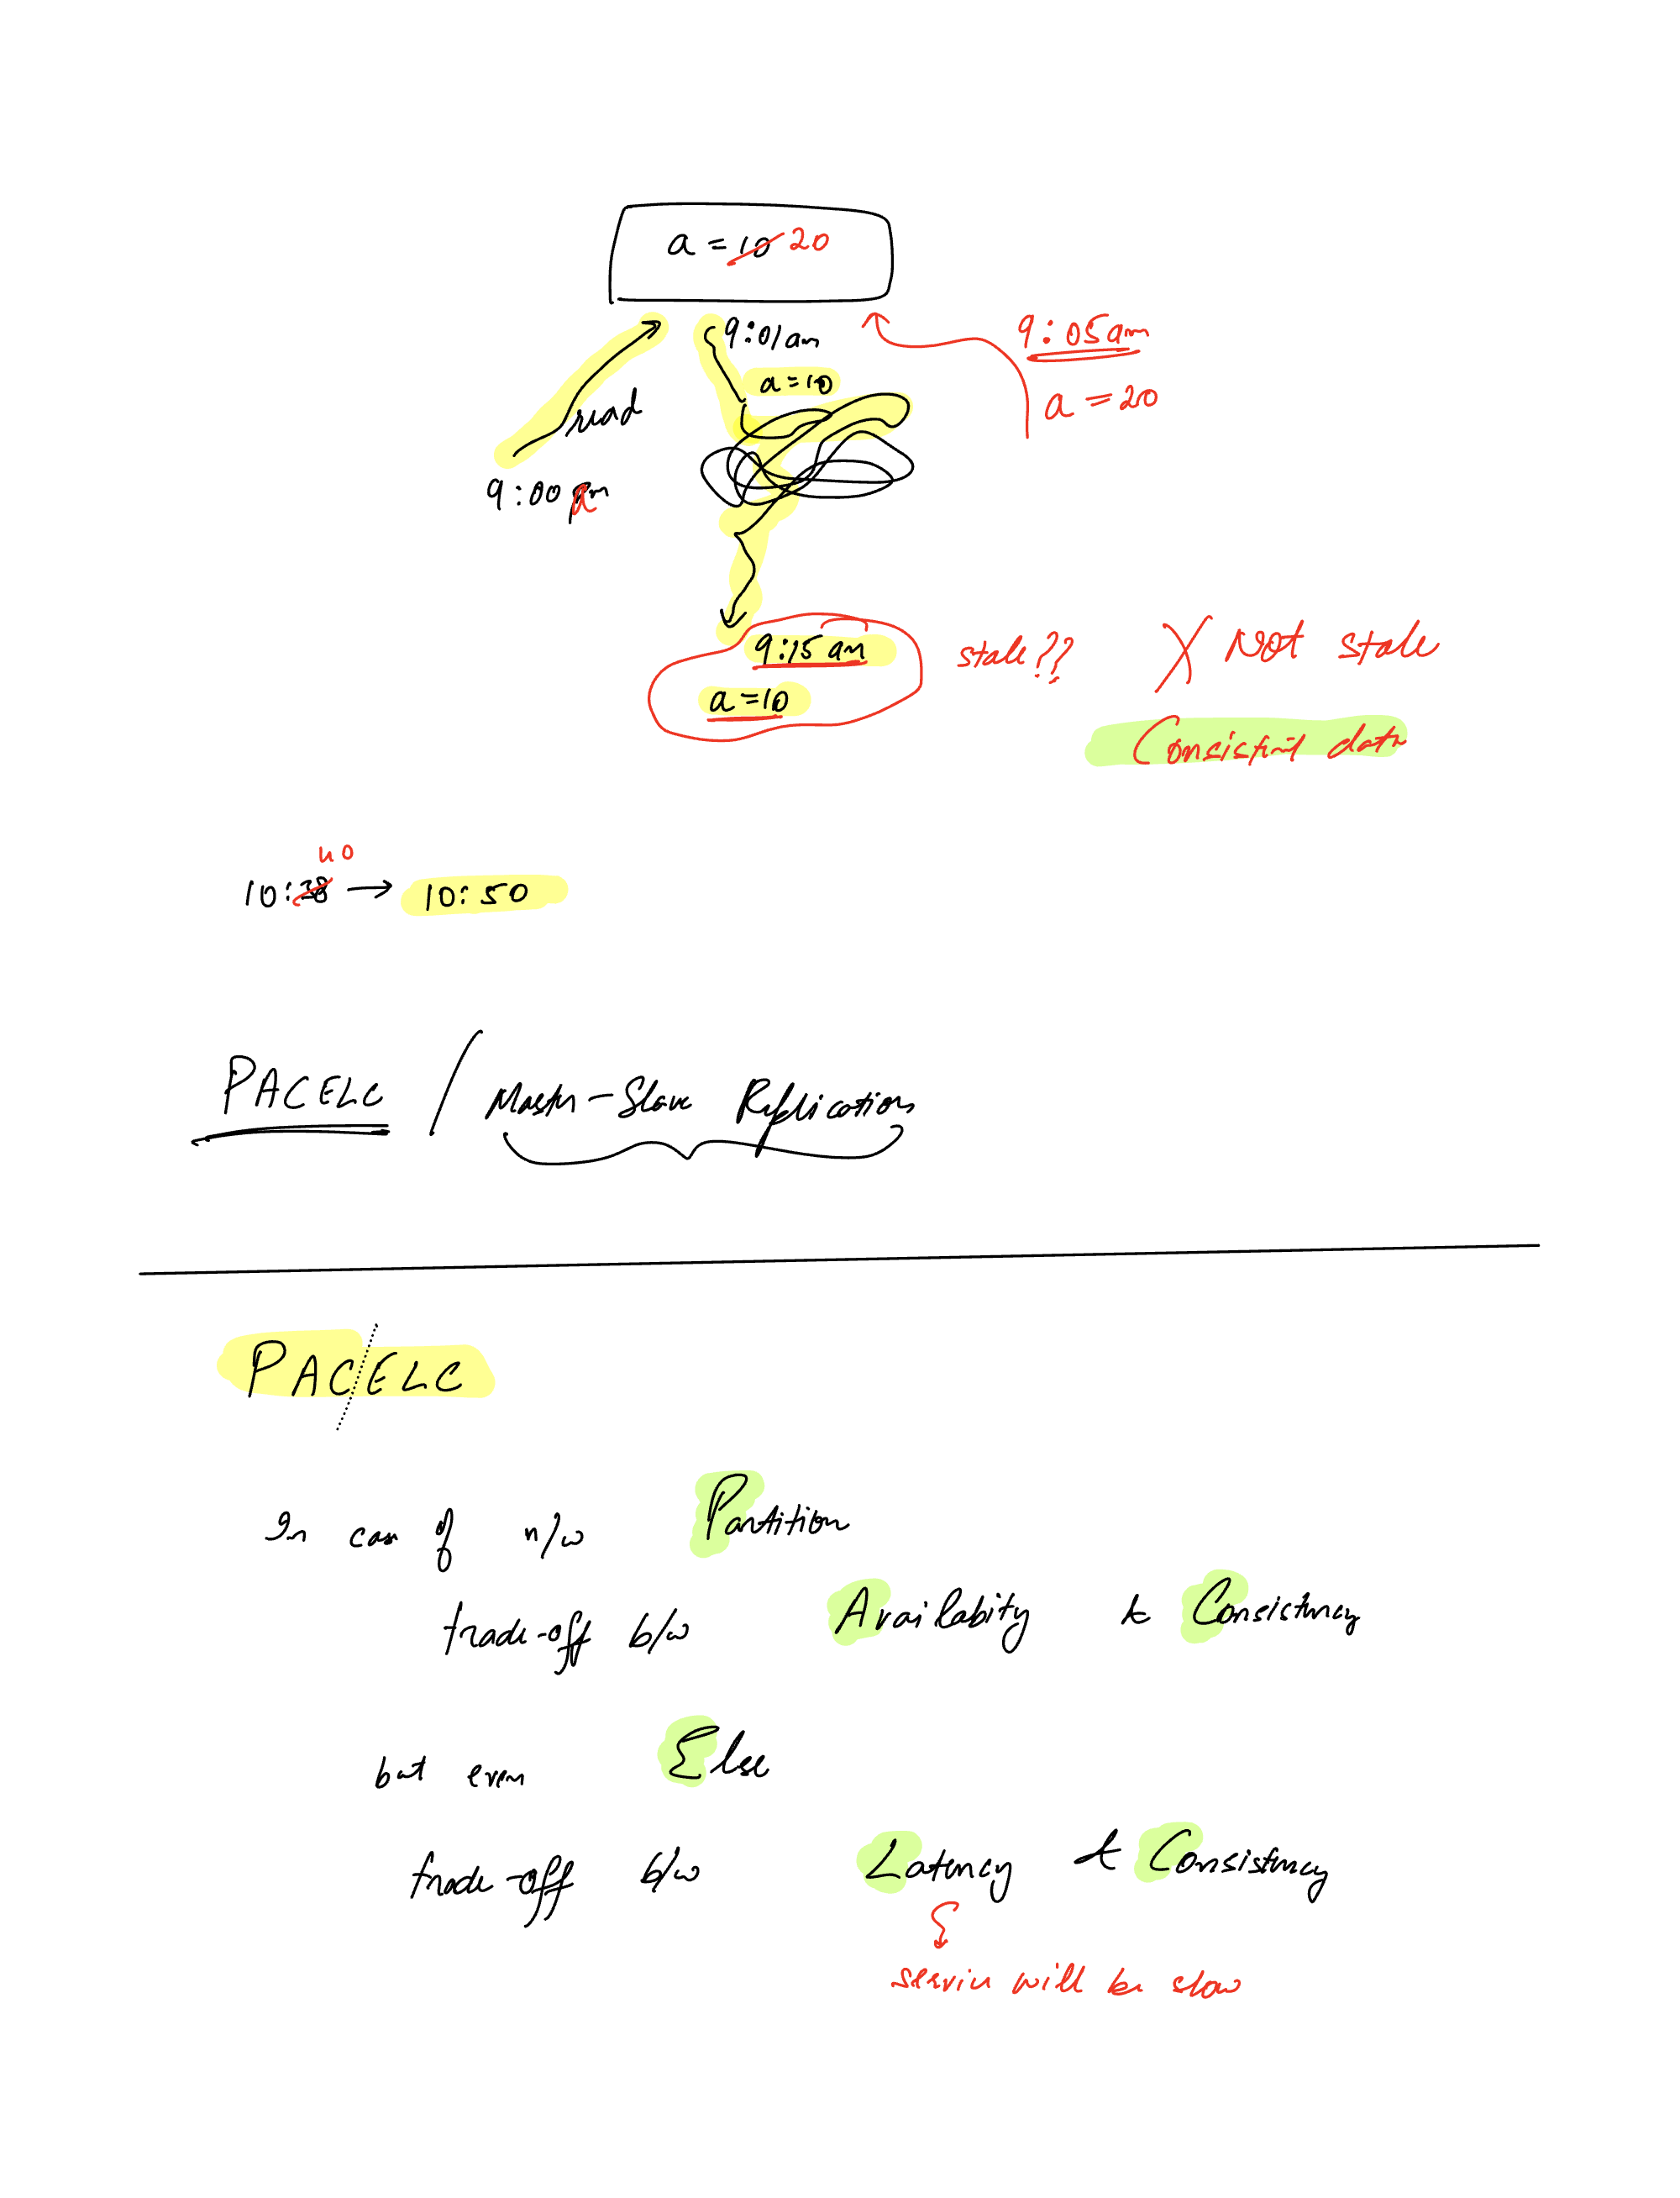 a = 10 20
9:01 am
9:05am
a = 10
a = 20
read
9:00 am
9:15 am
stale??
X Not stale
a = 10
Consistent data
40
10:38 → 10:50
PACELC / Master-Slave Replication
PAC/ELC
In case of n/w Partition
trade-off b/w Availabity & Consistency
but even Else
trade-off b/w Latency & Consistency
service will be slow